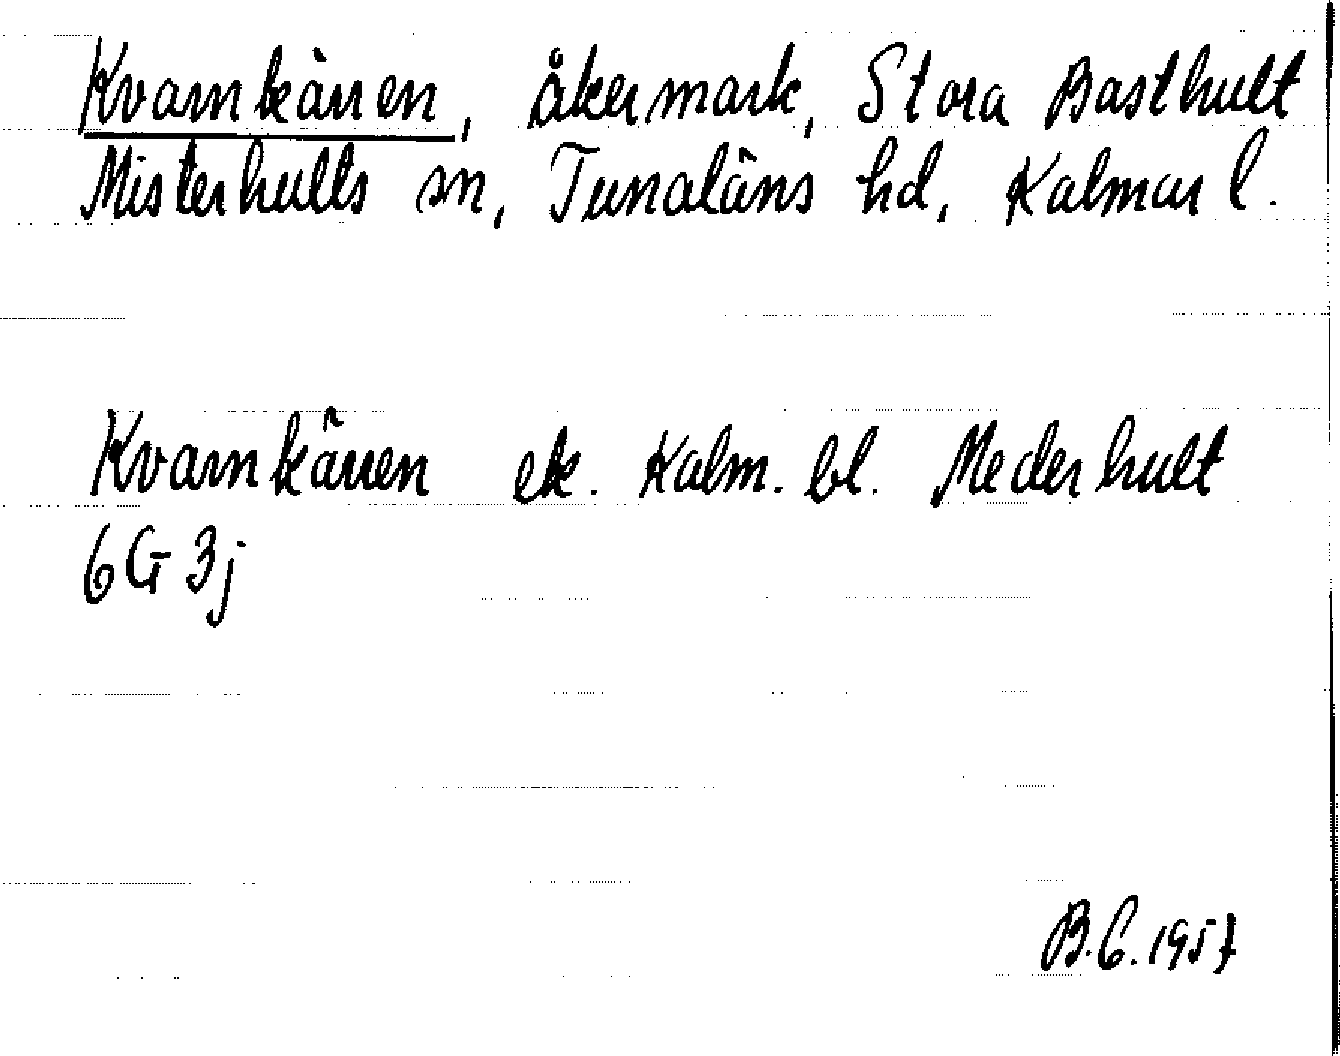 Kvarnkärren, åkermark, Stora Basthult
Misterhults sn, Tunaläns hd, Kalmar l.
Kvarnkärren ek. Kalm. bl. Mederhult
6G 3j
B.G. 1957